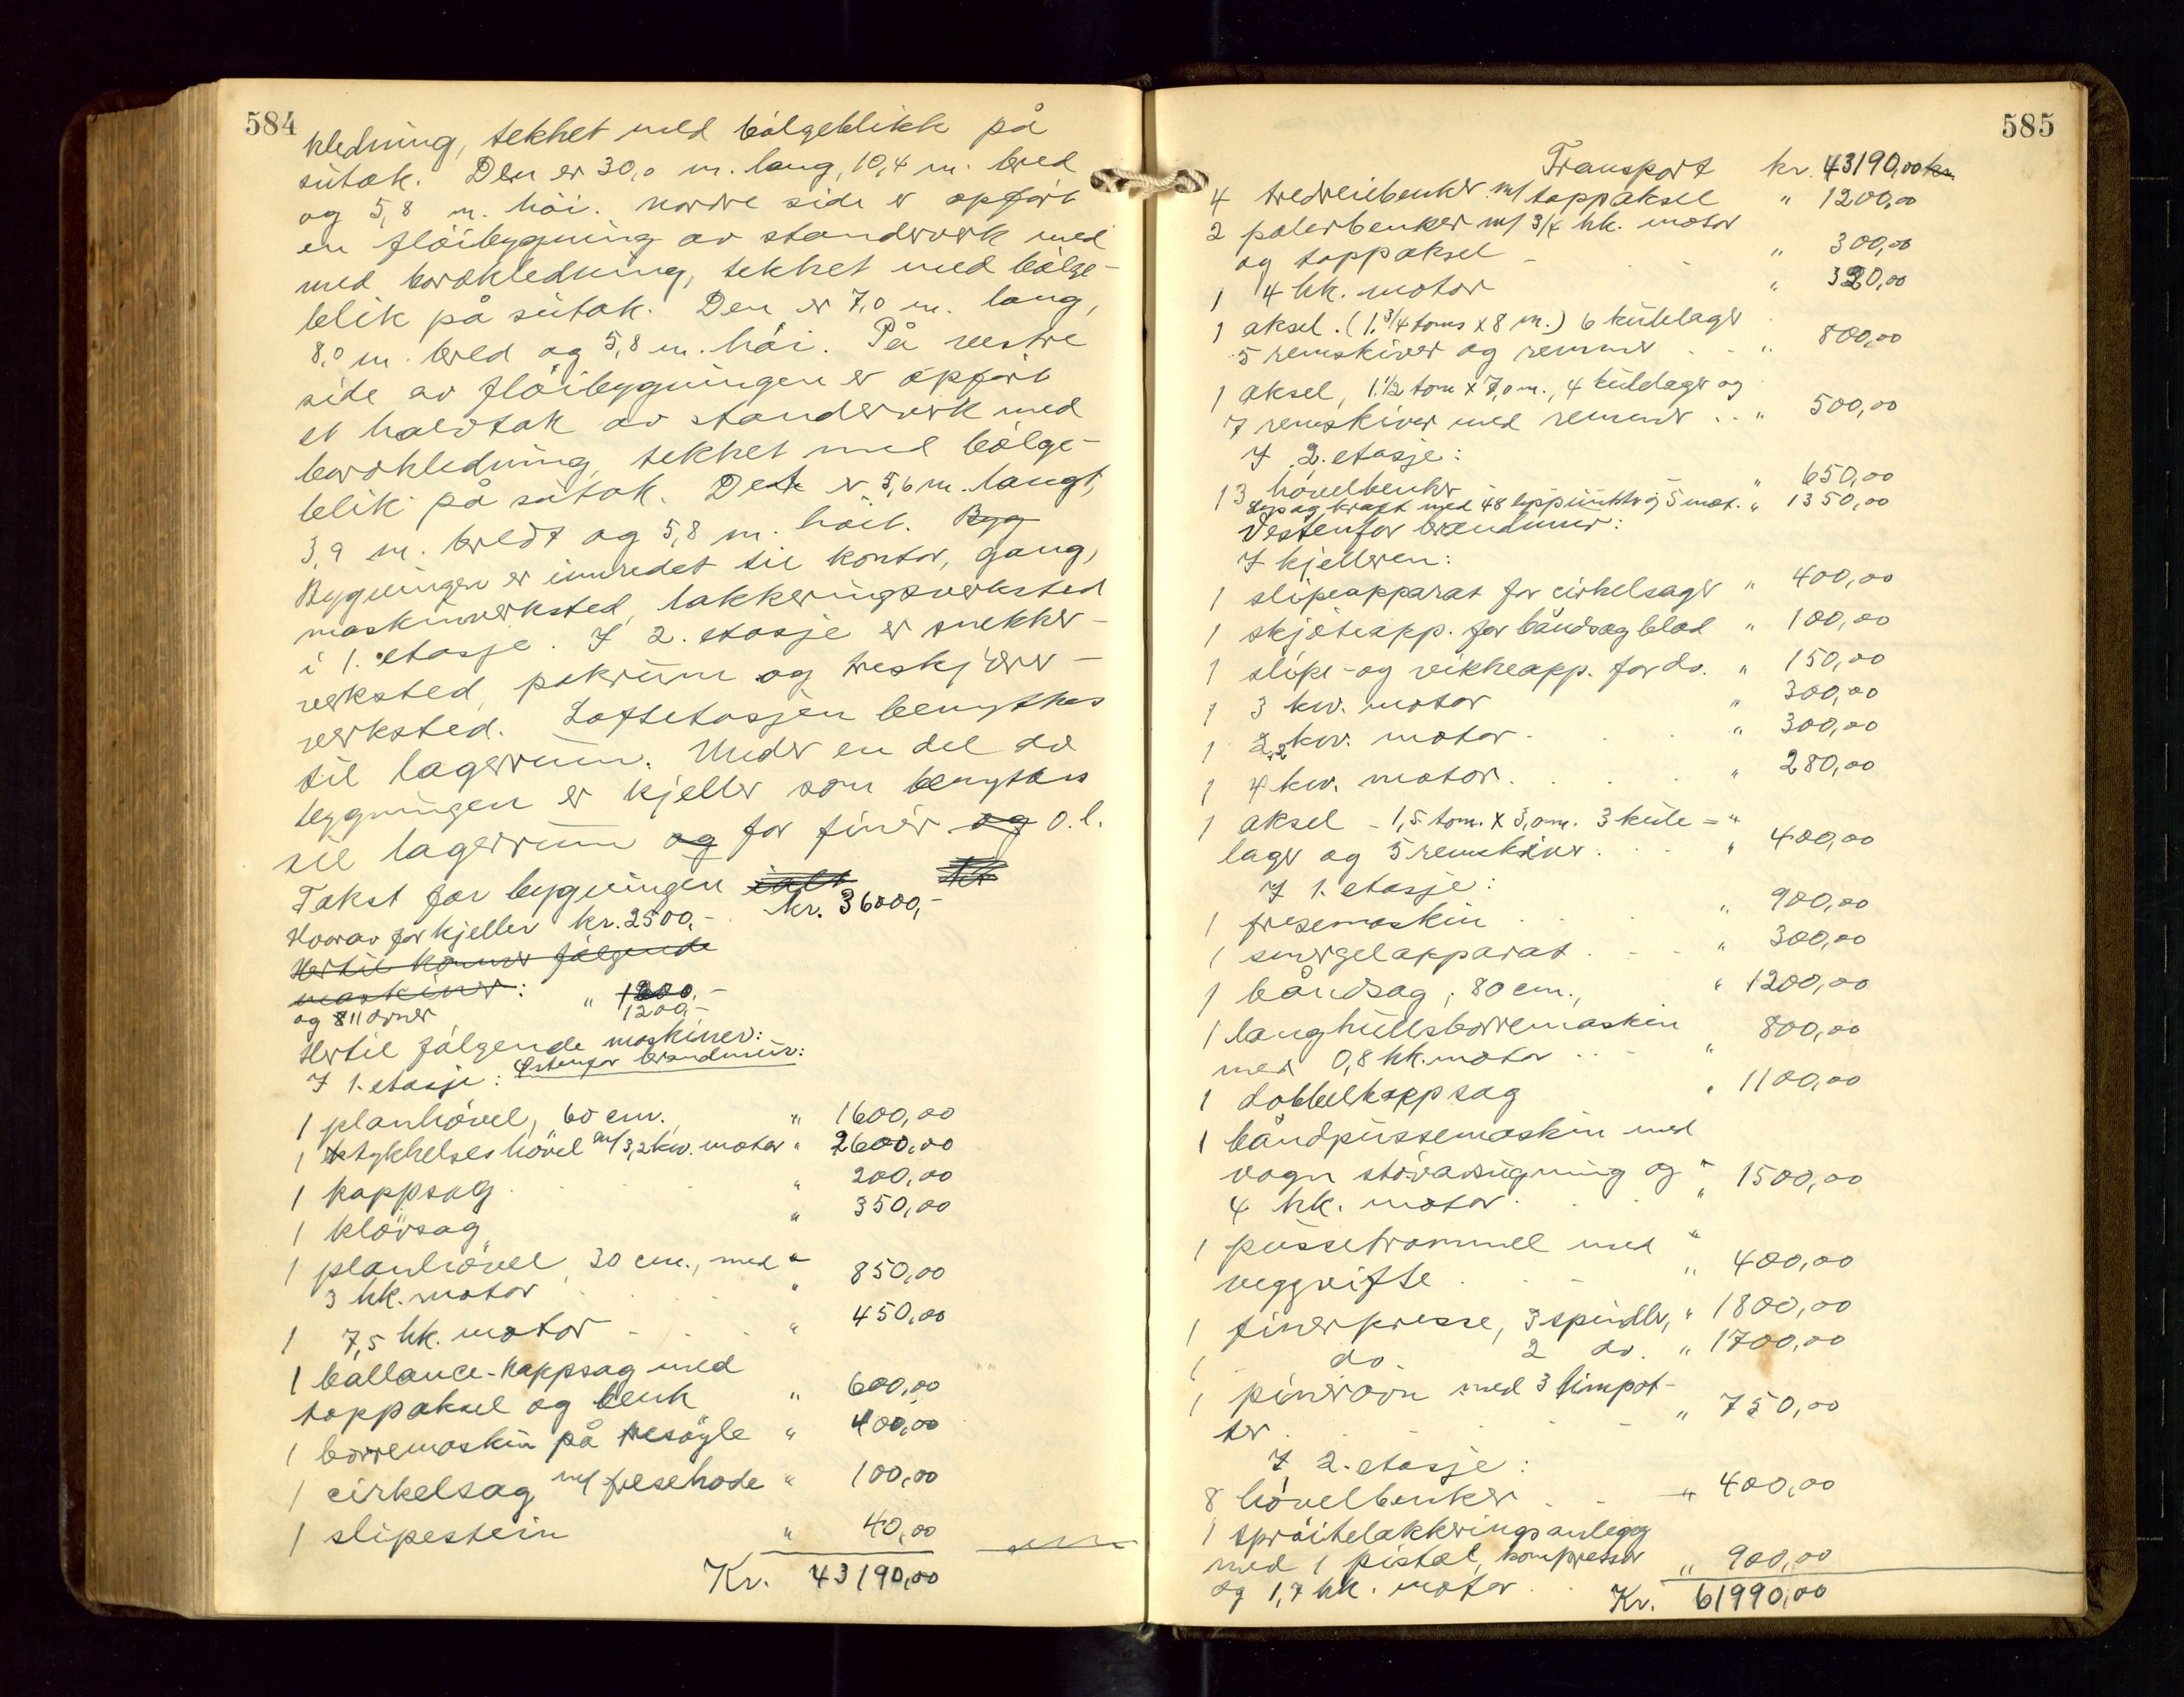 584
kledning, tekket med bølgeblikk på
sutak. Den er 30,0 m. lang, 10,4 m. bred
og 5,8 m. høi. Nordre side er opført
en fløibygning av standverk med
med bordkledning, tekket med bølge-
blik på sutak. Den er 7,0 m. lang,
8,0 m. bred og 5,8 m. høi. På vestre
side av fløibygningen er opført
et halvtak av standverk med
bordkledning, tekket med bølge-
blik på sutak. Det er 5,6 m. langt,
3,9 m. bredt og 5,8 m. høit. Byg
Bygningen er innredet til kontor, gang,
maskinverksted, lakkeringsverksted
i 1. etasje. I 2. etasje er snekker-
verksted, pakrum og treskjærer-
verksted. Loftetasjen benyttes
til lagerrum. Under en del av
bygningen er kjeller som benyttes
til lagerrum og for finér og o.l.
Takst for bygningen ialt
kr. 36000,-
Hvorav for kjeller kr. 2500,-
Hertil kommer følgende
maskiner:
og 11 ovner " 1200,-
Hertil følgende maskiner:
I 1. etasje: Østenfor brandmur:
1 planhøvel, 60 cm. " 1600,00
1 tykkelseshøvel m/ 3,2 kw. motor " 2600,00
1 kappsag " 200,00
1 kløvsag " 350,00
1 planhøvel, 30 cm., med "
3 hk. motor " 850,00
1 7,5 hk. motor " 450,00
1 ballance-kappsag med
toppaksel og benk " 600,00
1 borremaskin på tresøyle " 400,00
1 cirkelsag m/ fresehode " 100,00
1 slipestein " 40,00
Kr. 43190,00
585
Transport kr. 43190,00 kr.
4 tredreiebenker m/ toppaksel " 1200,00
2 polerbenker m/ 3/4 hk. motor
og toppaksel " 300,00
1 4 hk. motor " 320,00
1 aksel. (1.3/4 toms x 8 m.) 6 kulelager
5 remskiver og remmer " 800,00
1 aksel, 1.1/2 tom x 7,0 m., 4 kulelager og
7 remskiver med remmer " 500,00
I 2. etasje:
13 høvelbenker " 650,00
Lys og kraft med 48 lyspunkter og 5 mot. " 1350,00
Vestenfor brandmur:
I kjelleren:
1 slipeapparat for cirkelsager " 400,00
1 skjøteapp. for båndsagblad " 100,00
1 slipe- og vikkeapp. for do. " 150,00
1 3 kw. motor " 300,00
1 2,2 kw. motor " 300,00
1 4 kw. motor " 280,00
1 aksel - 1,5 tom. x 3,0 m. 3 kule- "
lager og 5 remskiver " 400,00
I 1. etasje:
1 fresemaskin " 900,00
1 smergelapparat " 300,00
1 båndsag, 80 cm., " 1200,00
1 langhullsborremaskin
med 0,8 hk. motor " 800,00
1 dobbelkappsag " 1100,00
1 båndpussemaskin med
vogn støvavsugning og "
4 hk. motor " 1500,00
1 pussetrommel med "
veggvifte " 400,00
1 finérpresse, 3 spindler, " 1800,00
1 do. 2 do. " 1700,00
1 finérovn med 3 limpot-
ter " 750,00
I 2. etasje:
8 høvelbenker " 400,00
1 sprøitelakkeringsanlegg
med 1 pistol, kompressor
og 1,7 hk. motor " 900,00
Kr. 61990,00